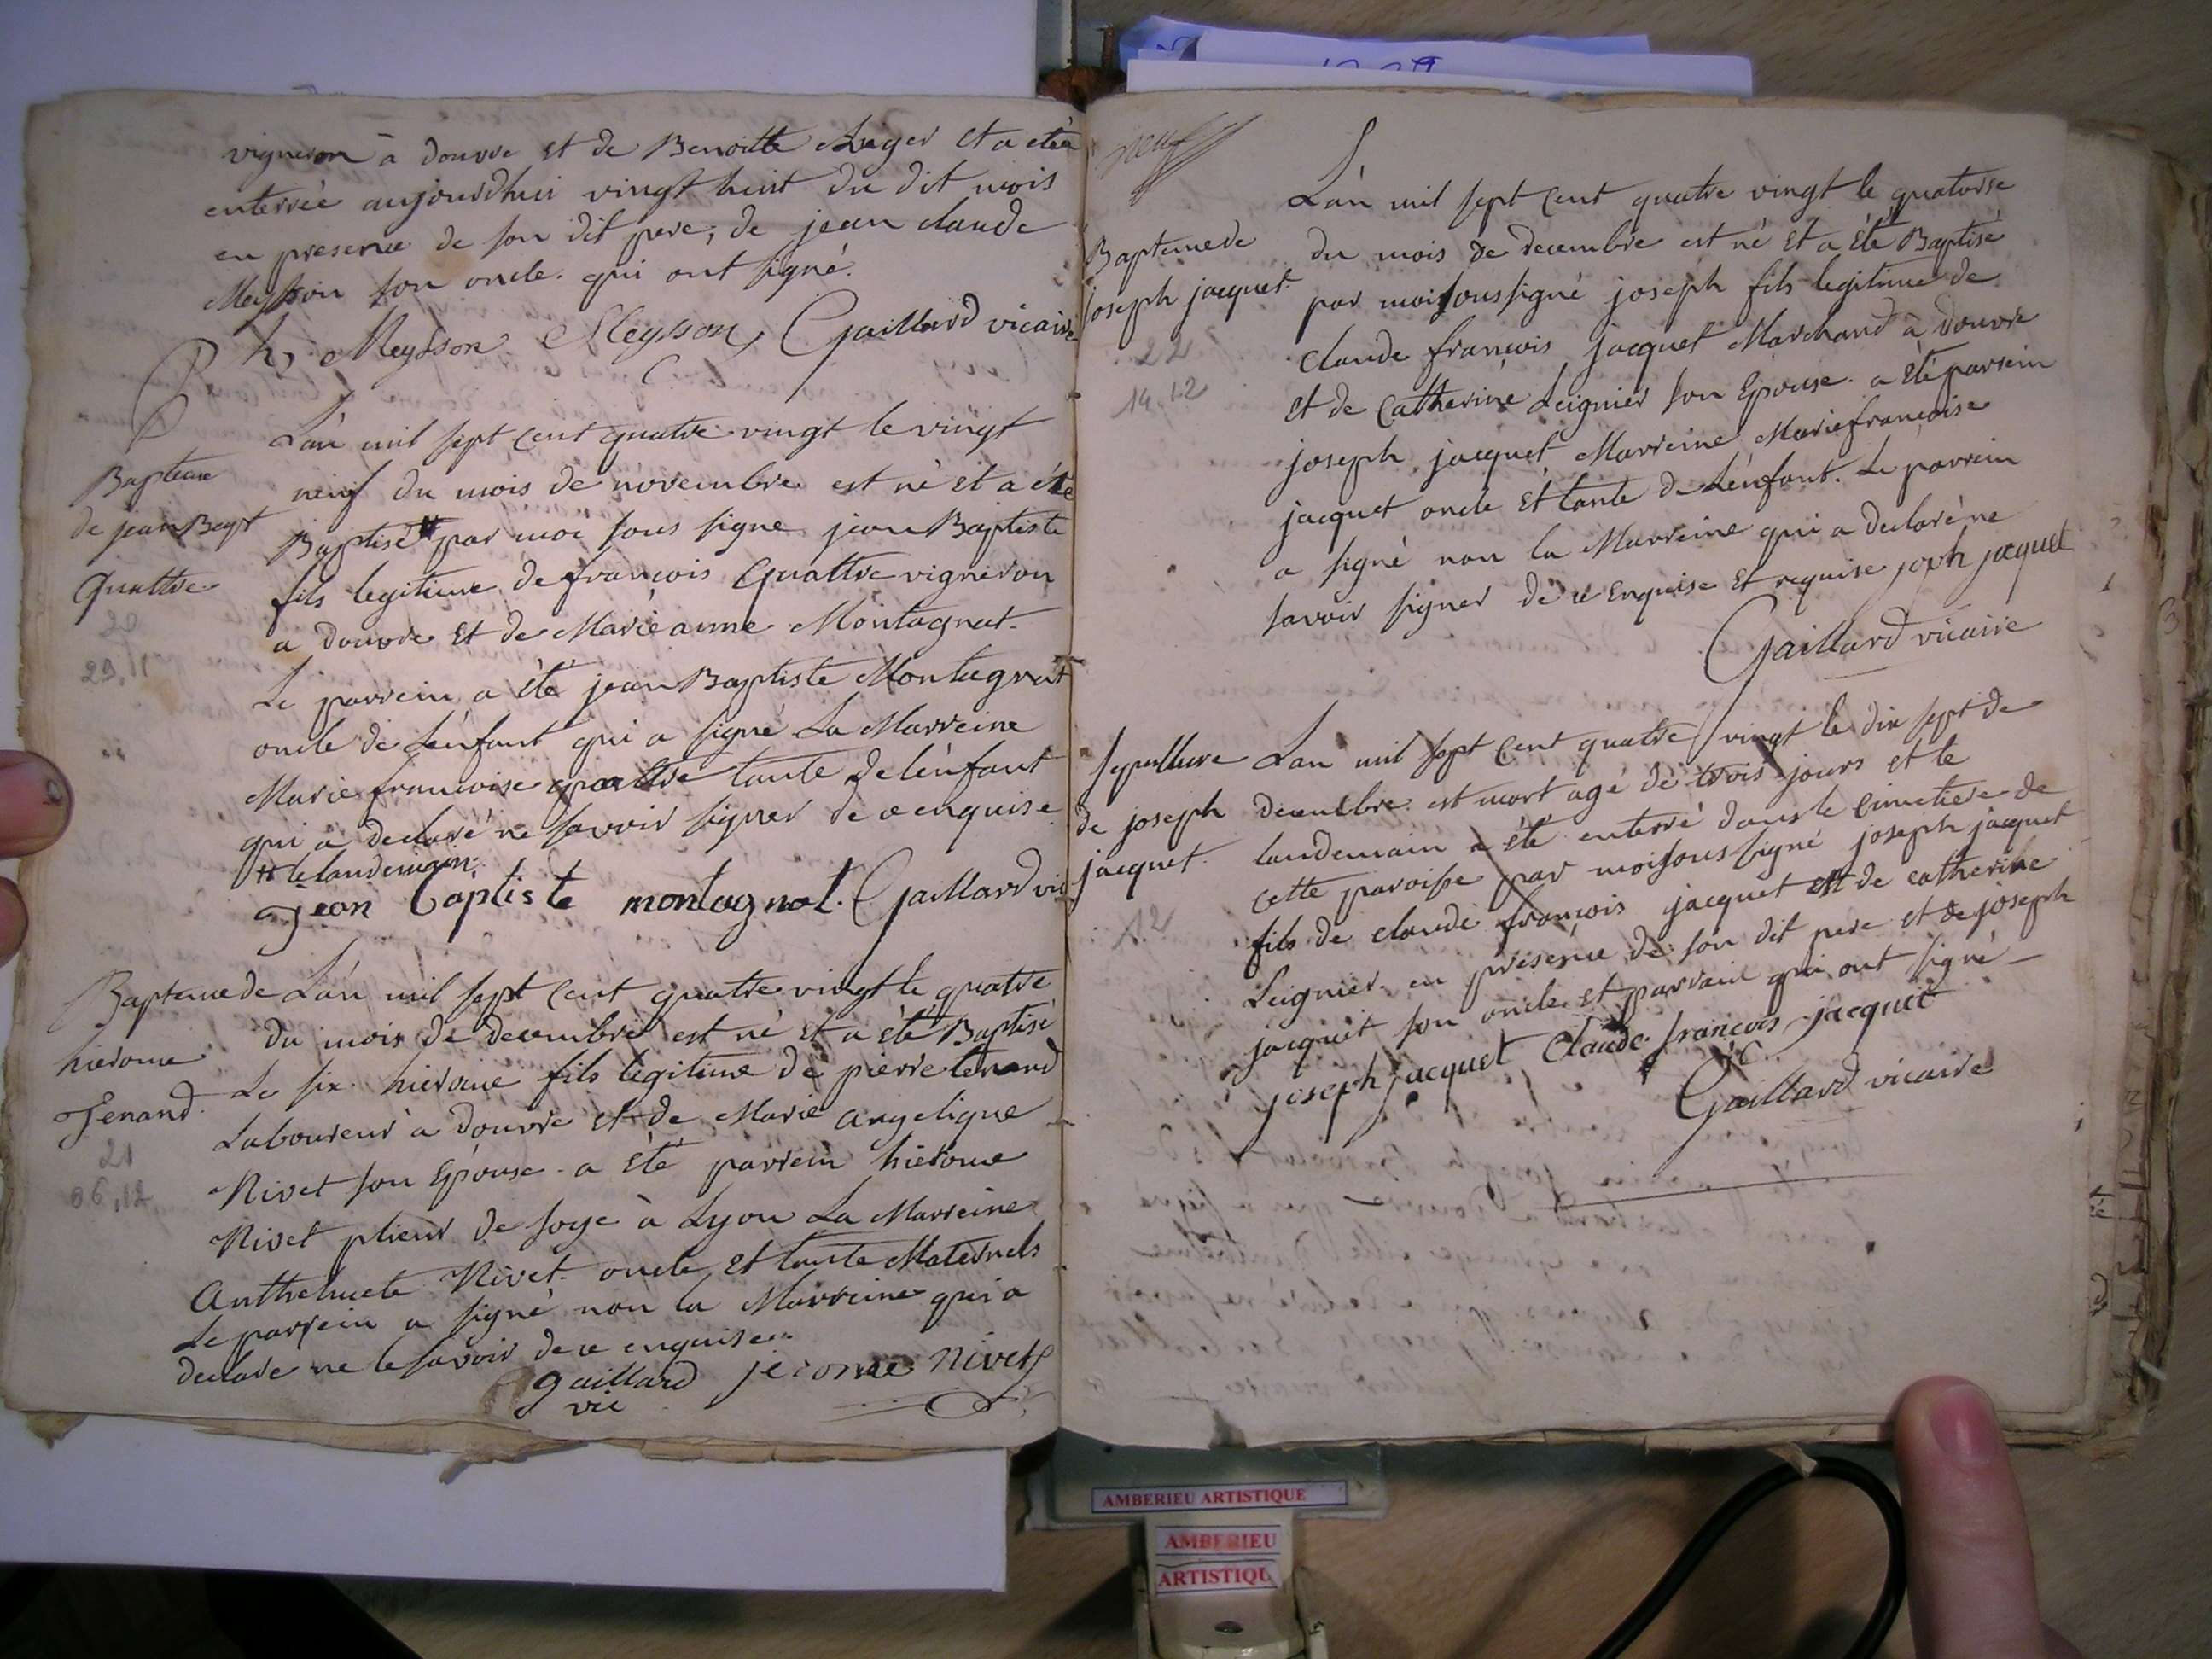 vigneron à douvre et de Benoitte Auger et a eteè
enterrée aujourdhui vingt huit du dit mois
en presence de son dit pere, de jean claude
Meysson son oncle. qui ont signé.
Meysson Meysson Gaillard vicaire
Bapteme
de jean Bapt
Quattre
20
29,11
Lán mil sept cent quatre vingt le vingt
neuf du mois de novembre est né et a été
Baptisé # par moi sous signe jean Baptiste
fils legitime de françois Quattre vigneron
a douvre et de Marie anne Montagnat.
Le parrein a été jean Baptiste Montagnat
oncle de Lénfant qui a signé La Marreine
Marie françoise quattre tante de lénfant
qui a declaré ne savoir signer de ce enquise
# le landemain
jean baptiste montagnat. Gaillard vic
Bapteme de
hierome
Tenand
21
06,12
Lán mil sept cent quatre vingt le quatre
du mois de decembre est né et a été Baptisé
Le six hierome fils legitime de pierre tenand
Laboureur à douvre et de Marie angelique
Nivet son Epouse a été parrein hierome
Nivet plieur de soye à Lyon La Marreine
Anthelmete Nivet oncle et tante Maternels
Le parrein a signé non la Marreine qui a
declaré ne le savoir de ce enquise
gaillard jerome Nivet
vic
neuf
Bapteme de
joseph jacquet
22
14.12
Lán mil sept cent quatre vingt le quatorse
du mois de decembre est né et a été Baptisé
par moi sous signé joseph fils legitime de
claude françois jacquet Marchand à douvre
et de Catherine Leignier son Epouse. a été parrein
joseph jacquet Marreine Marie françoise
jacquet oncle et tante de Lénfant. Le parrein
a signé non la Marreine qui a declaré ne
savoir signer de ce enquise et requise joseph jacquet
Gaillard vicaire
sepulture
de joseph
jacquet.
12
Lan mil sept cent quatre vingt le dix sept de
decembre est mort agé de trois jours et le
landemain a été enterré dans le cimetiere de
cette paroisse par moi sous signé joseph jacquet
fils de claude françois jacquet et de catherine
Leignier en presence de son dit pere et de joseph
jacquet son oncle et parrain qui ont signé
joseph jacquet Claude françois jacquet
Gaillard vicaire
AMBERIEU ARTISTIQUE
AMBERIEU
ARTISTIQU